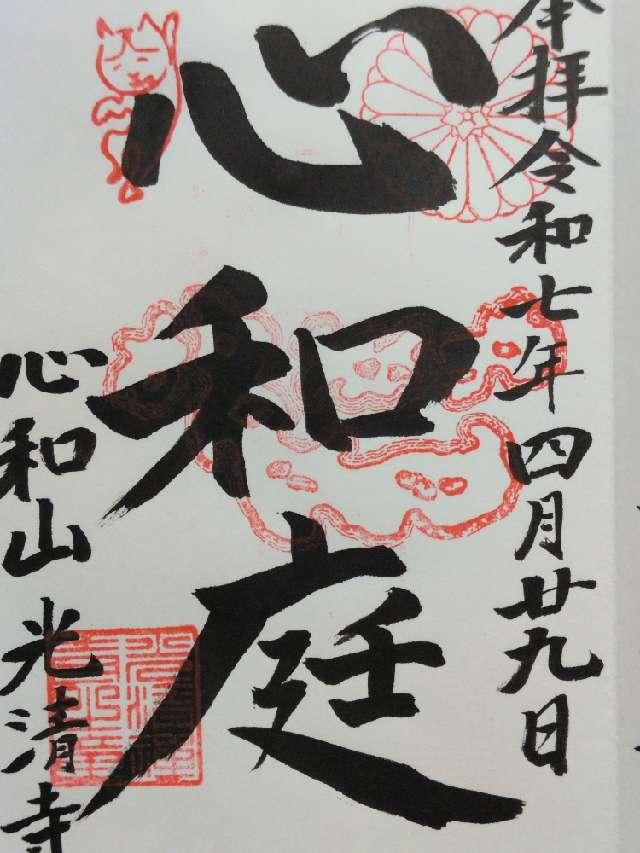 奉拝令和七年四月廿九日
心和庭
心和山光清寺